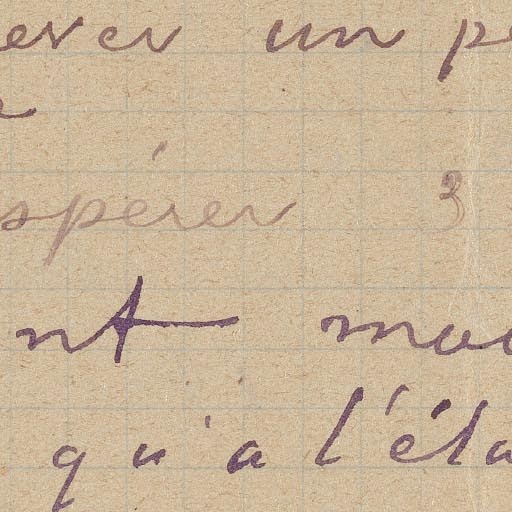 erer un pe
spérer 3
nt mou
qu'a l'éta